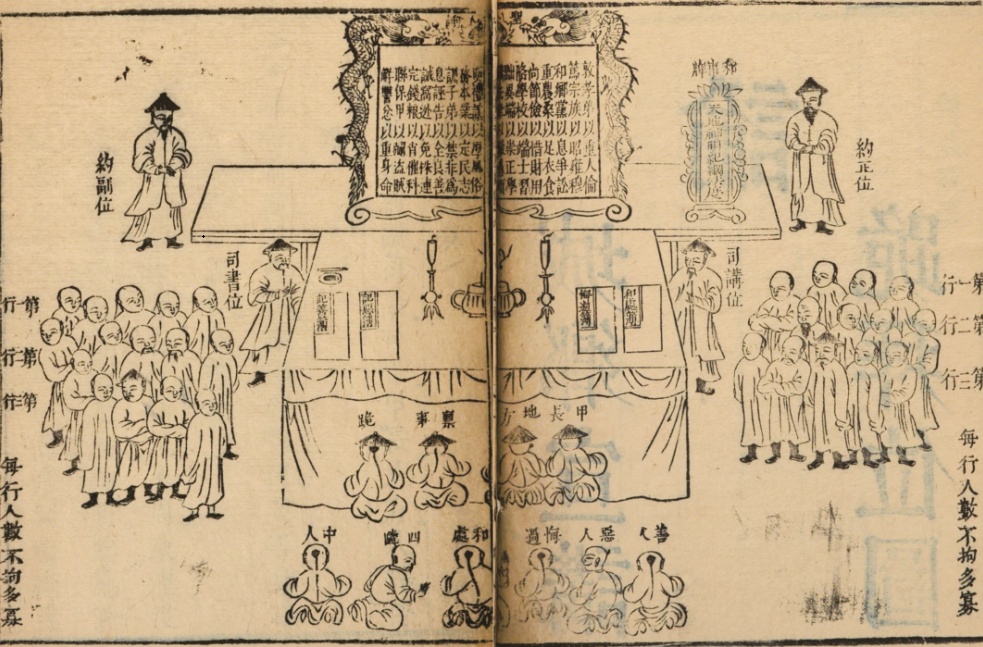 敦孝弟以重人倫
篤宗族以昭雍穆
和鄉黨以息爭訟
重農桑以足衣食
尚節儉以惜財用
隆學校以端士習
黜異端以崇正學
明禮讓以厚風俗
務本業以定民志
訓子弟以禁非為
息誣告以全良善
誡窩逃以免株連
完錢糧以省催科
聯保甲以弭盜賊
解讐忿以重身命
天地神明紀綱法度
約正位
約副位
司講位
司書位
第一行
第二行
第三行
每行人數不拘多寡
和處簿
悔過簿
記惡簿
記善簿
甲長地方
稟事跪
善人
惡人
悔過
和處
四處
中人
第一行
第二行
第三行
每行人數不拘多寡